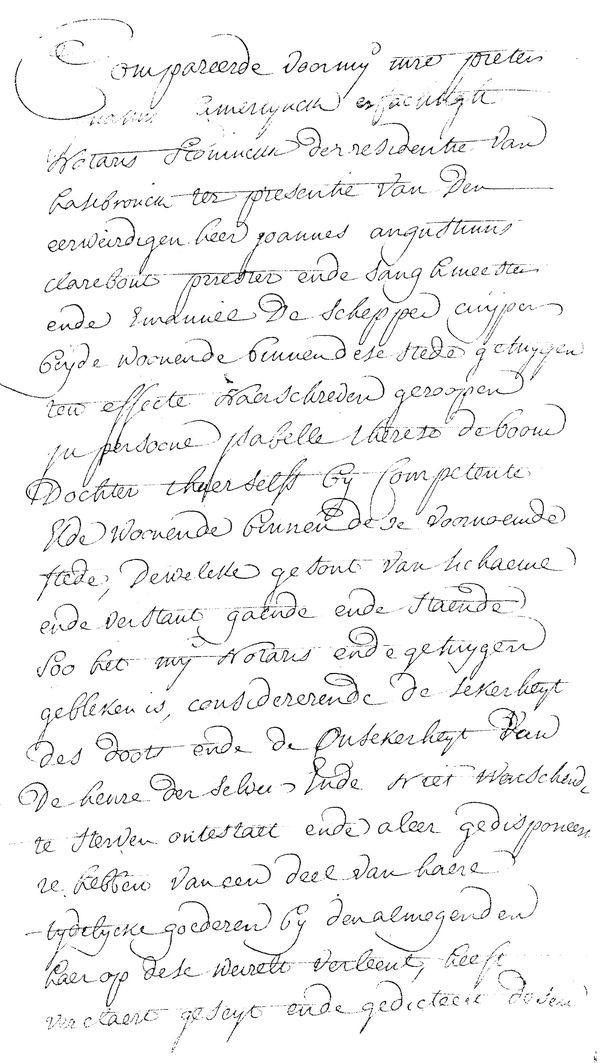 Compareerde voor my mre pieter
Notaris Coninck der residentie van
hasebrouck ter presentie van den
eerweirdigen heer joannes augustinus
clarebout priester ende sanghmeester
ende Emanuel De Schepper cuyper
beyde woonende binnen dese stede getuygen
ten effecte naerschreven geroopen
jn persoone jsabelle therese de boom
Dochter thaerselfs by competente
Elde woonende binnen dese voornoemde
stede, Deweleke gesont van lichaeme
ende verstant gaende ende staende
soo het my Notaris ende getuygen
gebleken is, considererende de sekerheyt
des doots ende de Onsekerheyt van
De heure der selve Ende niet wenschende
te sterven ontestatt ende aleer gedisponeert
te hebben van een deel van haere
tydelycke goederen by den almogenden
haer op dese weirelt verleent, heeft
verclaert geseyt ende gedicteert dosen